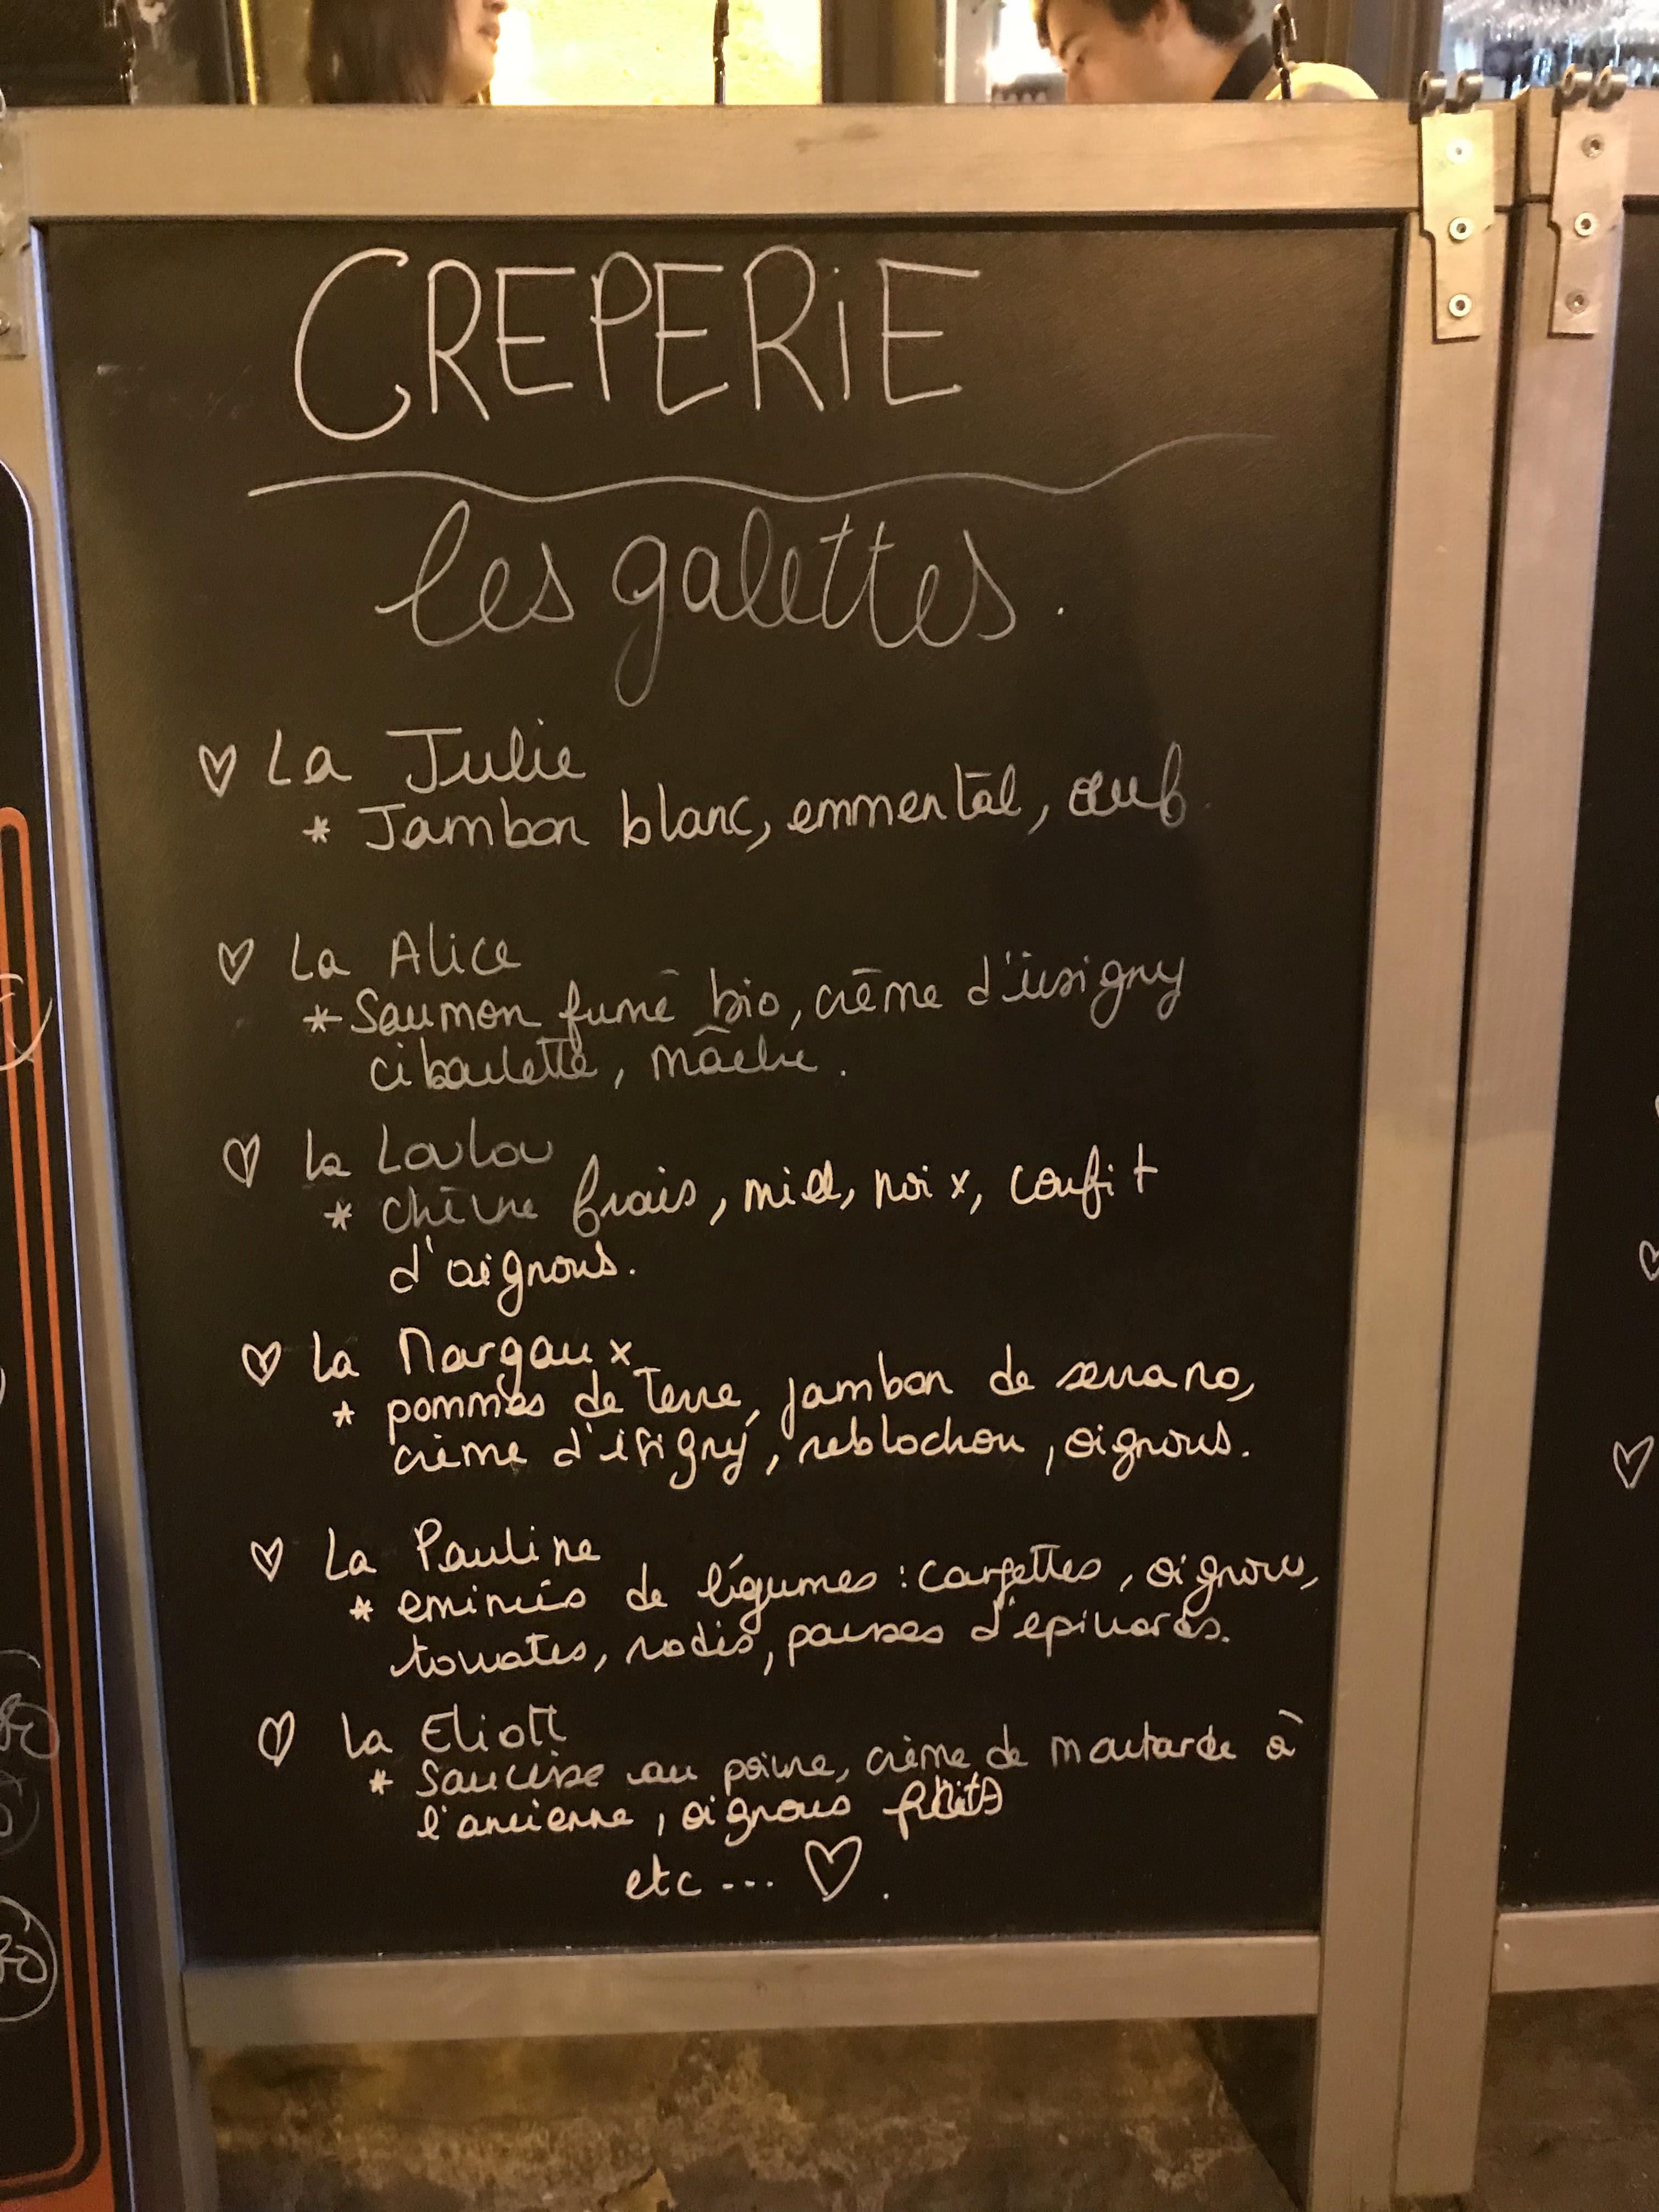 CREPERiE
les galettes.
La Julie
* Jambon blanc, emmental, œuf.
La Alice
* Saumon fumé bio, crème d'isigny
ciboulette, mâche.
La Loulou
* chèvre frais, miel, noix, confit
d'oignons.
La Margaux
* pommes de terre, jambon de serrano,
crème d'isigny, reblochon, oignons.
La Pauline
* emincés de légumes : courgettes, oignons,
tomates, radis, pousses d'epinards.
La Eliott
* Saucisse au poivre, crème de moutarde à
l'ancienne, oignons frits
etc ... .